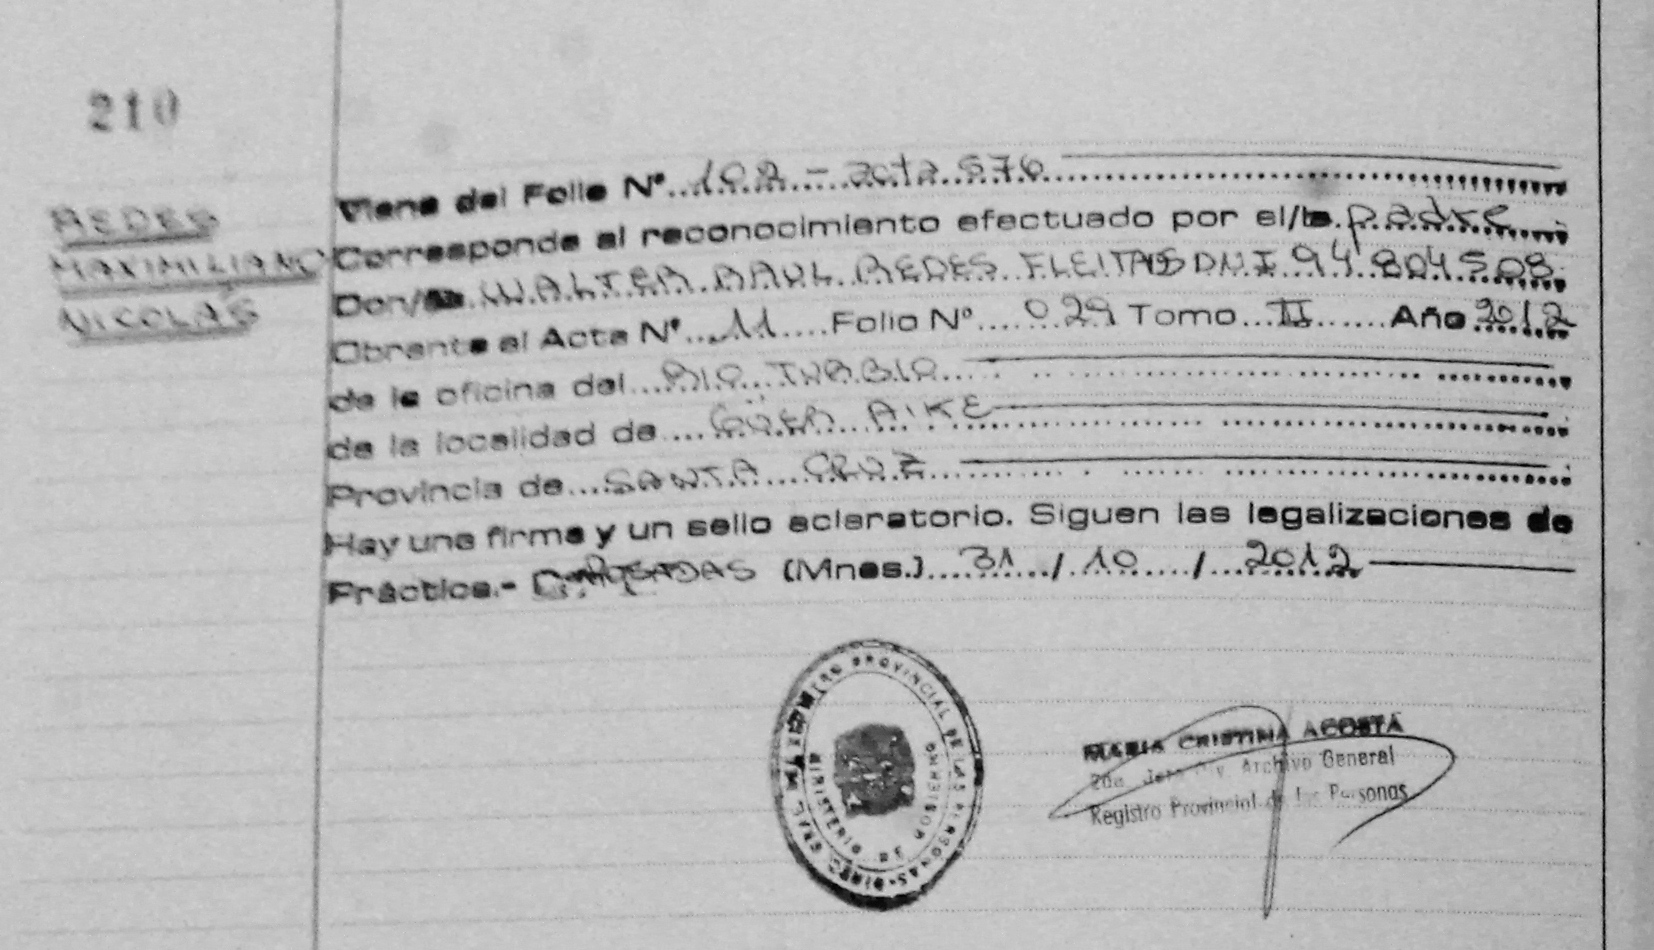 210
REDES
MAXIMILIANO
NICOLÁS
Viene del Folio Nº...102 - acta 576
Corresponde al reconocimiento efectuado por el/la padre
Don/ña WALTER RAUL REDES FLEITAS DNI 94 804 508
Obrante al Acta Nº...11....Folio Nº....029 Tomo...II......Año 2012
de la oficina del...RIO TURBIO
de la localidad de....GÜER AIKE
Provincia de...SANTA CRUZ
Hay una firma y un sello aclaratorio. Siguen las legalizaciones de
Práctica.- POSADAS (Mnes.)....31..../.10...../...2012
REGISTRO PROVINCIAL DE LAS PERSONAS - DIREC. GRAL.
MINISTERIO DE GOBIERNO
MARIA CRISTINA ACOSTA
2da. Jefa Div. Archivo General
Registro Provincial de las Personas